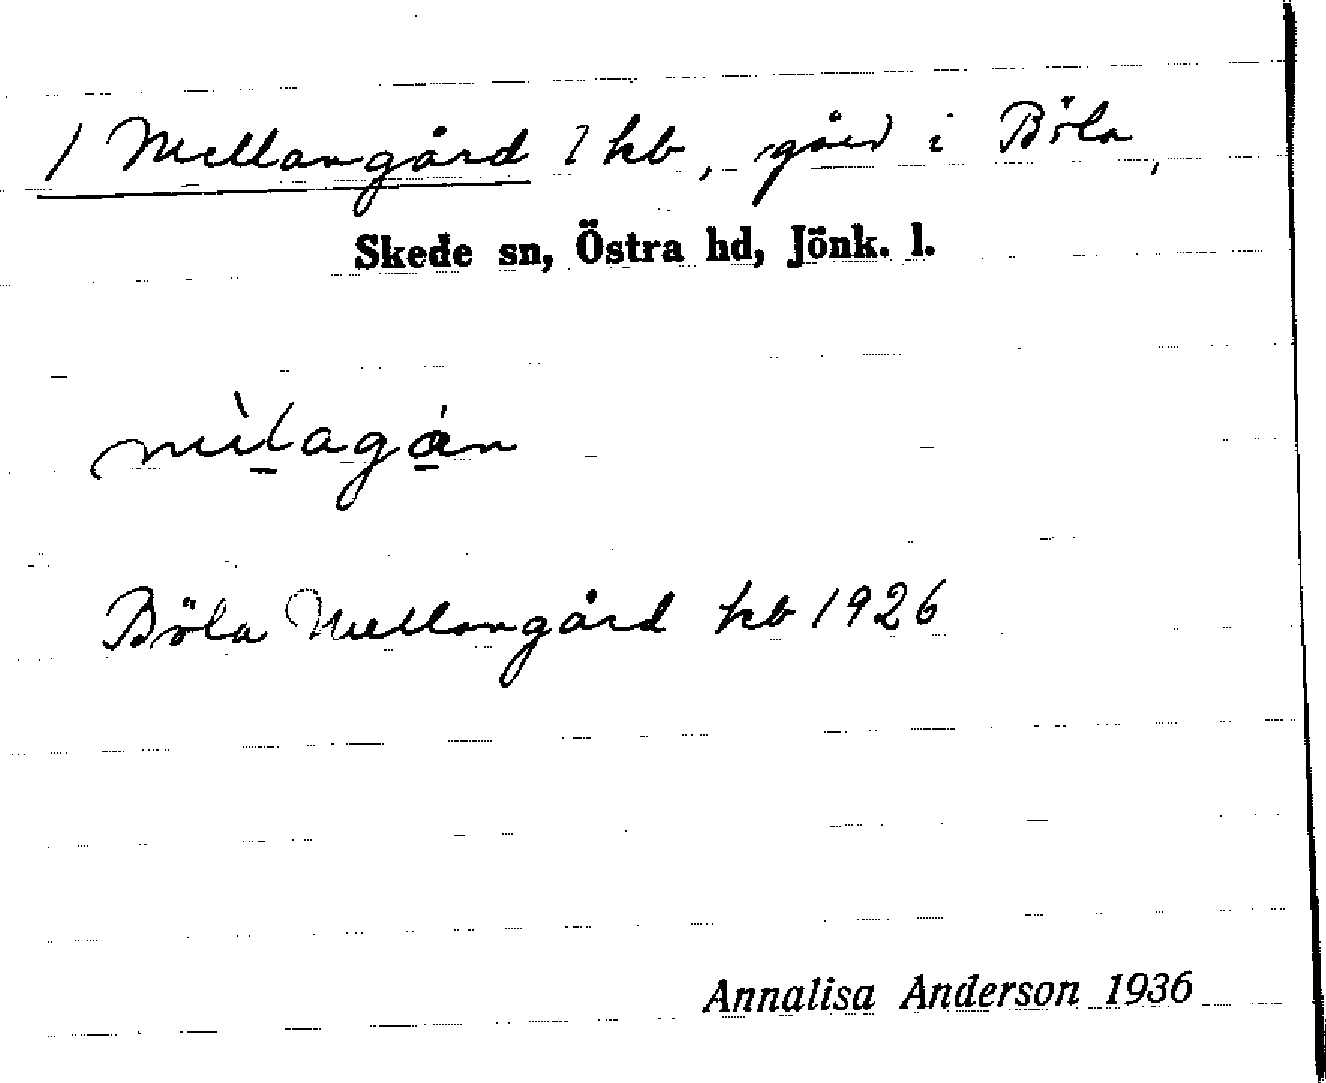 / Mellangård / hb, gård i Böla,
Skede sn, Östra hd, Jönk. l.
mìlagán
Böla Mellangård hb 1926
Annalisa Anderson 1936